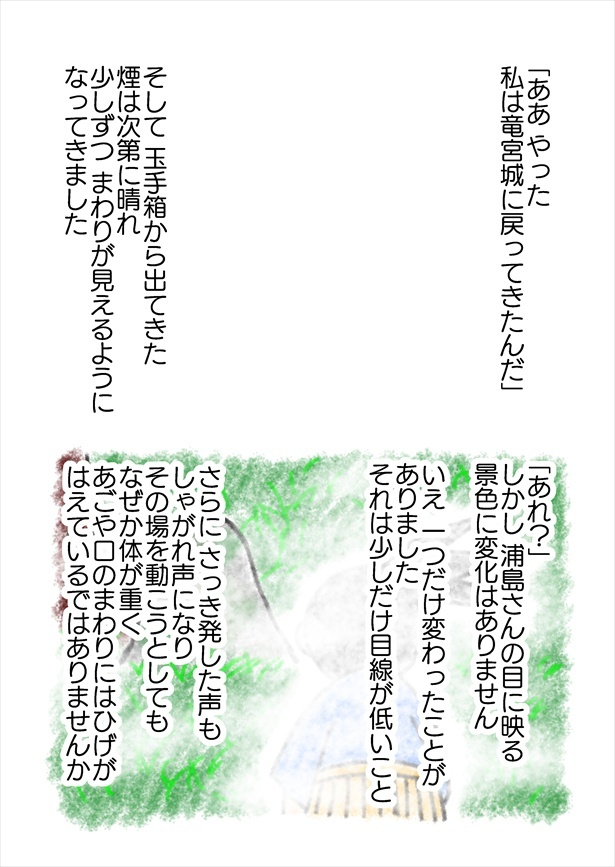 「ああ やった
私は竜宮城に戻ってきたんだ」
そして 玉手箱から出てきた
煙は次第に晴れ
少しずつ まわりが見えるように
なってきました
「あれ？」
しかし 浦島さんの目に映る
景色に変化はありません
いえ 一つだけ変わったことが
ありました
それは少しだけ目線が低いこと
さらに さっき発した声も
しゃがれ声になり
その場を動こうとしても
なぜか体が重く
あごや口のまわりにはひげが
はえているではありませんか